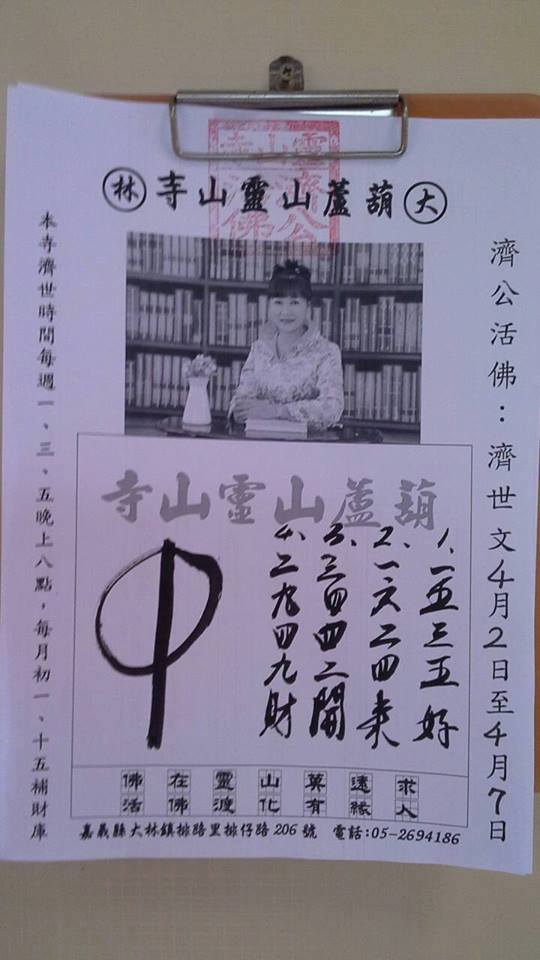 靈山寺
濟公
活佛
大葫蘆山靈山寺林
濟公活佛：濟世文4月2日至4月7日
葫蘆山靈山寺
1、一五三五好
2、一六二四来
3、三四四二開
4、二九四九財
佛在靈山莫遠求
活佛渡化有緣人
本寺濟世時間每週一、三、五晚上八點，每月初一、十五補財庫
嘉義縣大林鎮排路里排仔路206號 電話:05-2694186